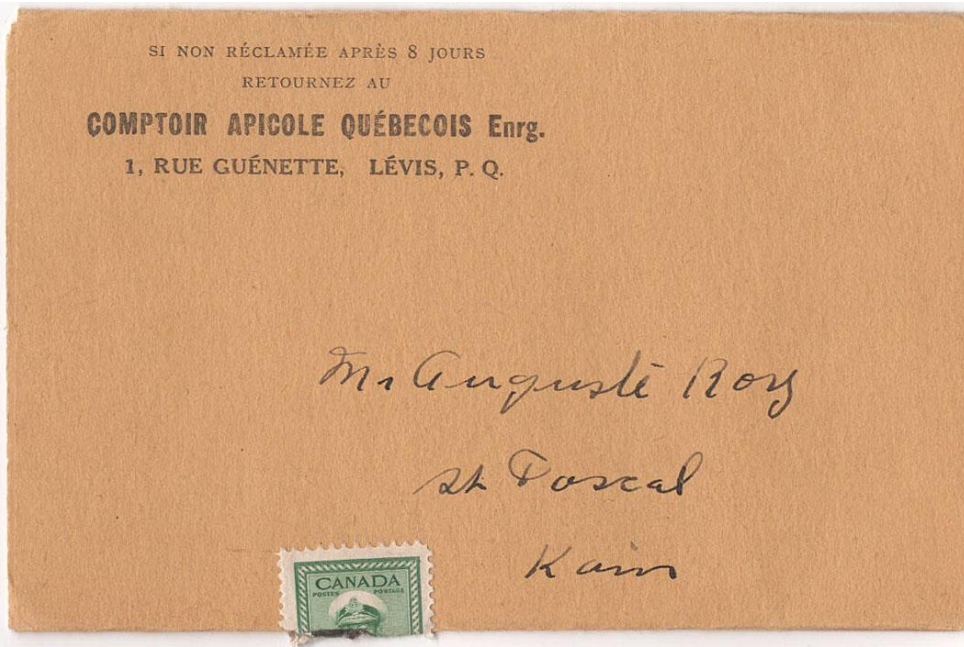 SI NON RÉCLAMÉE APRÈS 8 JOURS
RETOURNEZ AU
COMPTOIR APICOLE QUÉBECOIS Enrg.
1, RUE GUÉNETTE, LÉVIS, P. Q.
Mr Auguste Roy
St Pascal
Kam
CANADA
POSTES POSTAGE